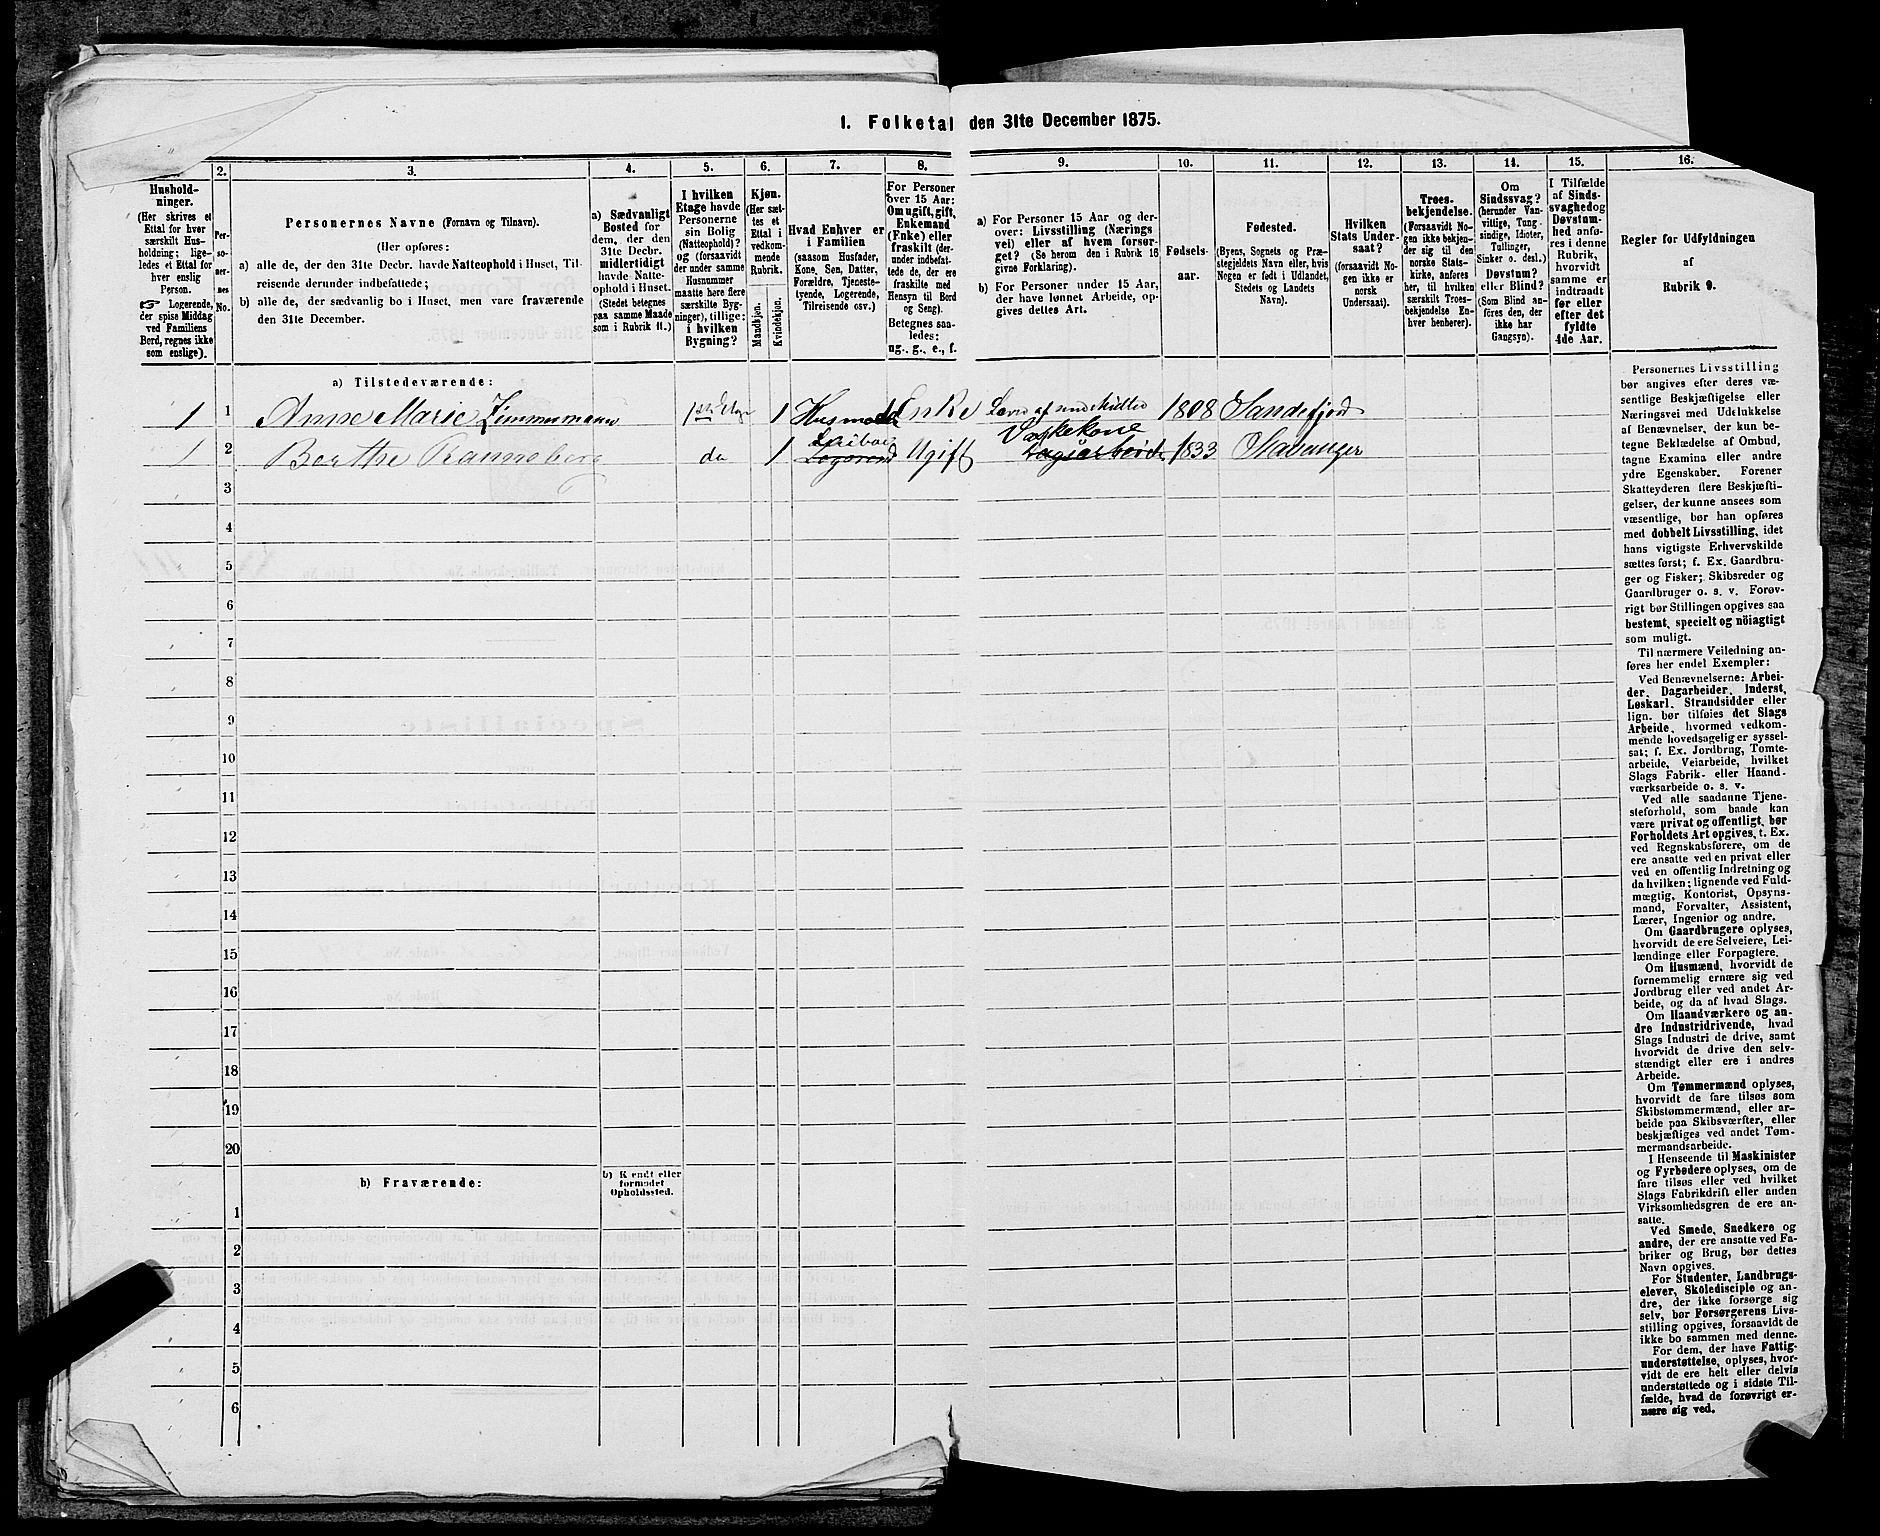 1. Folketal den 31te December 1875.
2. 3. 4. 5. 6. 7. 8. 9. 10. 11. 12. 13. 14. 15. 16.
Hushold-
ninger.
(Her skrives et
Ettal for hver
særskilt Hus-
holdning; lige-
ledes et Ettal for
hver enslig
Person.
☞ Logerende,
der spise Middag
ved Familiens
Bord, regnes ikke
som enslige).
Per-
so-
ner-
nes
No.
Personernes Navne (Fornavn og Tilnavn).
(Her opføres:
a) alle de, der den 31te Decbr. havde Natteophold i Huset, Til-
reisende derunder indbefattede;
b) alle de, der sædvanlig bo i Huset, men vare fraværende
den 31te December.
a) Sædvanligt
Bosted for
dem, der den
31te Decbr.
midlertidigt
havde Natte-
ophold i Huset.
(Stedet betegnes
paa samme Maade
som i Rubrik 11.)
I hvilken
Etage havde
Personerne
sin Bolig
(Natteophold)?
og (forsaavidt
der under samme
Husnummer
maatte høre flere
særskilte Byg-
ninger), tillige:
i hvilken
Bygning?
Kjøn.
(Her sæt-
tes et
Ettal i
vedkom-
mende
Rubrik.
Mandkjøn.
Kvindekjøn.
Hvad Enhver er
i Familien
(saasom Husfader,
Kone, Søn, Datter,
Forældre, Tjeneste-
tyende, Logerende,
Tilreisende osv.)
For Personer
over 15 Aar:
Om ugift, gift,
Enkemand
(Enke) eller
fraskilt (der-
under indbefat-
tede de, der ere
fraskilte med
Hensyn til Bord
og Seng).
Betegnes saa-
ledes:
ug., g., e., f.
a) For Personer 15 Aar og der-
over: Livsstilling (Nærings
vei) eller af hvem forsør-
get? (Se herom den i Rubrik 16
givne Forklaring).
b) For Personer under 15 Aar,
der have lønnet Arbeide, op-
gives dettes Art.
Fødsels-
aar.
Fødested.
(Byens, Sognets og Præ-
stegjeldets Navn eller, hvis
Nogen er født i Udlandet,
Stedets og Landets
Navn).
Hvilken
Stats Under-
saat?
(forsaavidt No-
gen ikke er
norsk
Undersaat).
Troes-
bekjendelse.
(Forsaavidt No-
gen ikke bekjen-
der sig til den
norske Stats-
kirke, anføres
her, til hvilken
særskilt Troes-
bekjendelse En-
hver henhører).
Om
Sindssvag?
(herunder Van-
vittige, Tung-
sindige, Idioter,
Tullinger,
Sinker o. desl.)
Døvstum?
eller Blind?
(Som Blind an-
føres den, der
ikke har
Gangsyn).
I Tilfælde
af Sinds-
svaghed og
Døvstum-
hed anfø-
res i denne
Rubrik,
hvorvidt
samme er
indtraadt
før eller
efter det
fyldte
4de Aar.
Regler for Udfyldningen
af
Rubrik 9.
a) Tilstedeværende:
1 1 Anne Marie Zimmermann 1ste Etage 1 Husmoder Enke Lever af sine Midler 1808 Sandefjord
1 2 Berthe Ranneberg da 1 Logerend Ugift Vaskekone 1833 Stavanger
3
4
5
6
7
8
9
10
11
12
13
14
15
16
17
18
19
20
b) Fraværende:
b) Kjendt eller
formodet
Opholdssted.
1
2
3
4
5
6
Personernes Livsstilling
bør angives efter deres væ-
sentlige Beskjæftigelse eller
Næringsvei med Udelukkelse
af Benævnelser, der kun be-
tegne Beklædelse af Ombud,
tagne Examina eller andre
ydre Egenskaber. Forener
Skatteyderen flere Beskjæfti-
gelser, der kunne ansees som
væsentlige, bør han opføres
med dobbelt Livsstilling, idet
hans vigtigste Erhvervskilde
sættes først; f. Ex. Gaardbru-
ger og Fisker; Skibsreder og
Gaardbruger o. s. v. Forøv-
rigt bør Stillingen opgives saa
bestemt, specielt og nöiagtigt
som muligt.
Til nærmere Veiledning an-
føres her endel Exempler:
Ved Benævnelserne: Arbei-
der, Dagarbeider, Inderst,
Løskarl, Strandsidder eller
lign. bør tilføies det Slags
Arbeide, hvormed vedkom-
mende hovedsagelig er syssel-
sat; f. Ex. Jordbrug, Tomte-
arbeide, Veiarbeide, hvilket
Slags Fabrik- eller Haand-
værksarbeide o. s. v.
Ved alle saadanne Tjene-
steforhold, som baade kan
være privat og offentligt, bør
Forholdets Art opgives, t. Ex.
ved Regnskabsførere, om de
ere ansatte ved en privat eller
ved en offentlig Indretning og
da hvilken; lignende ved Fuld-
mægtig, Kontorist, Opsyns-
mand, Forvalter, Assistent,
Lærer, Ingeniør og andre.
Om Gaardbrugere oplyses,
hvorvidt de ere Selveiere, Lei-
lændinge eller Forpagtere.
Om Husmænd, hvorvidt de
fornemmelig ernære sig ved
Jordbrug eller ved andet Ar-
beide, og da af hvad Slags.
Om Haandværkere og an-
dre Industridrivende, hvad
Slags Industri de drive, samt
hvorvidt de drive den selv-
stændigt eller ere i andres
Arbeide.
Om Tømmermænd oplyses,
hvorvidt de fare tilsøs som
Skibstømmermænd, eller ar-
beide paa Skibsværfter, eller
beskjæftiges ved andet Tøm-
mermandsarbeide.
I Henseende til Maskinister
og Fyrbødere oplyses, om de
fare tilsøs eller ved hvilket
Slags Fabrikdrift eller anden
Virksomhedsgren de ere an-
satte.
Ved Smede, Snedkere og
andre, der ere ansatte ved Fa-
briker og Brug, bør dettes
Navn opgives.
For Studenter, Landbrugs-
elever, Skoledisciple og an-
dre, der ikke forsørge sig
selv, bør Forsørgerens Livs-
stilling opgives, forsaavidt de
ikke bo sammen med denne.
For dem, der have Fattig-
understøttelse, oplyses, hvor-
vidt de ere helt eller delvis
understøttede og i sidste Til-
fælde, hvad de forøvrigt er-
nære sig ved.